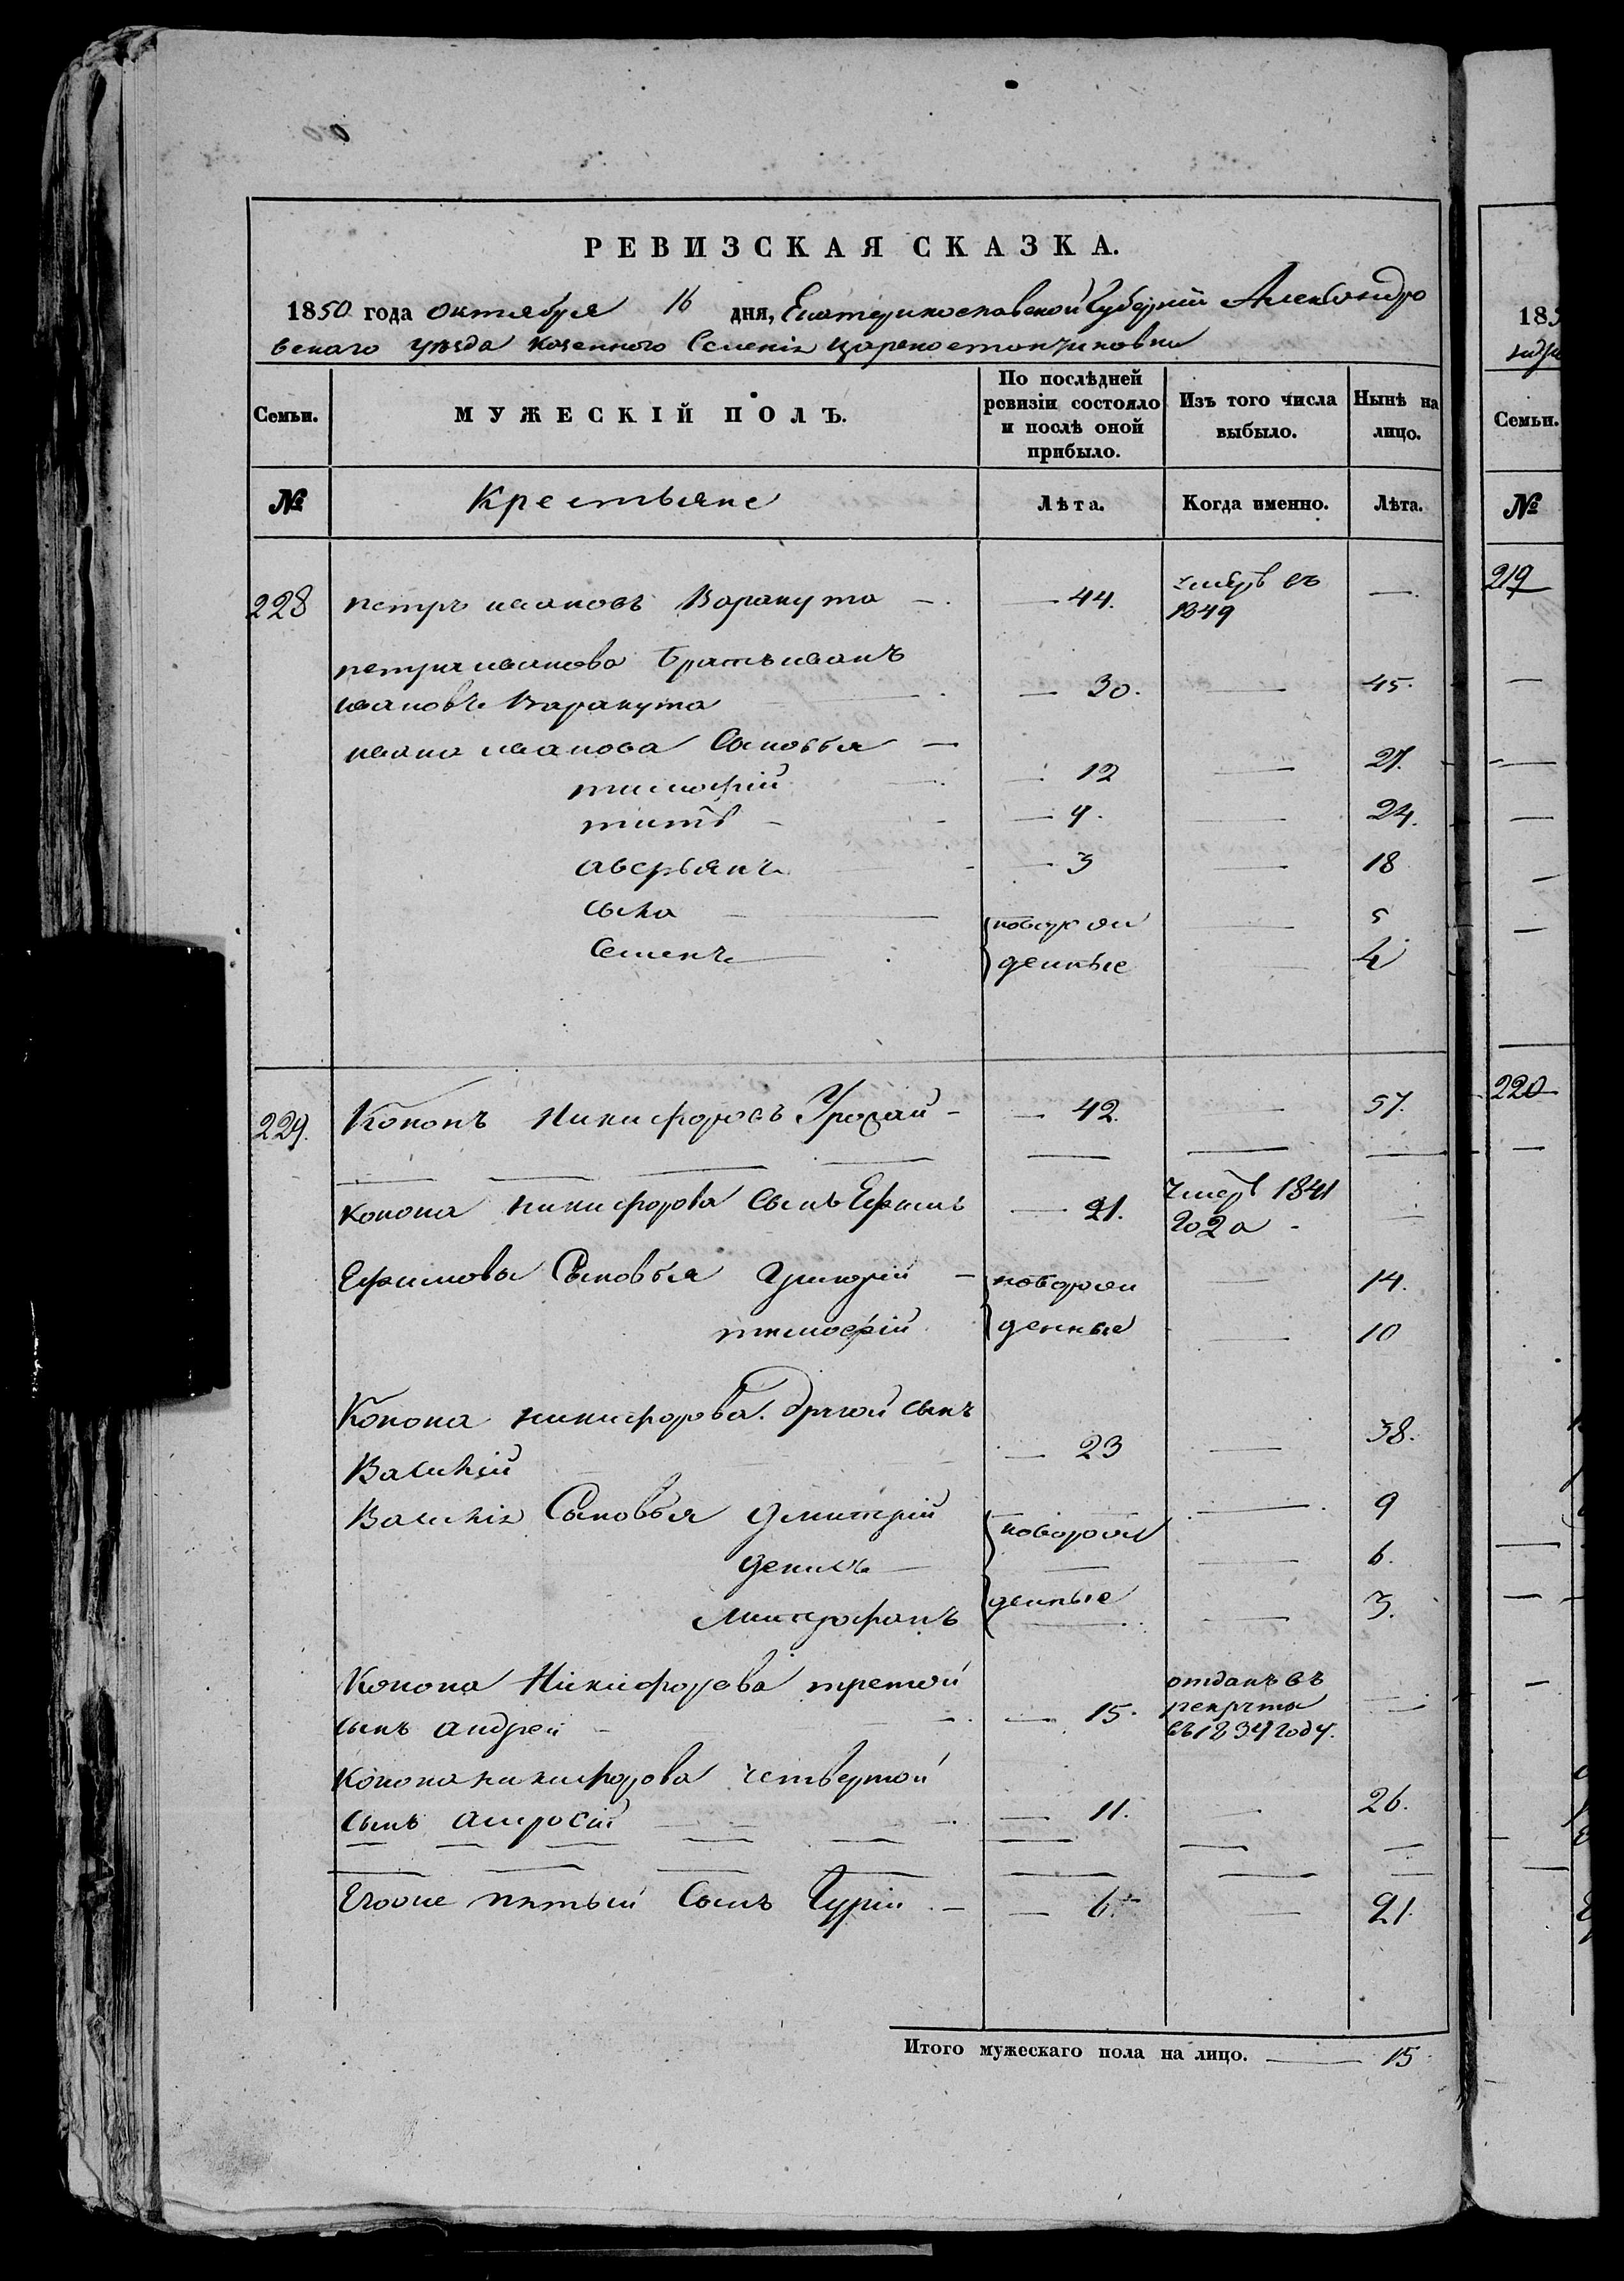 РЕВИЗСКАЯ СКАЗКА.
1850 года октября 16 дня, Екатеринославской Губерніи Александро
вскаго уѣзда казенного Селенія Цареконстантиновки
Семьи. МУЖЕСКІЙ ПОЛЪ. По послѣдней ревизіи состояло и послѣ оной прибыло. Изъ того числа выбыло. Нынѣ на лицо.
№ Крестьяне Лѣта. Когда именно. Лѣта.
228 петръ ивановъ Варакута — 44. умеръ въ 1849 —
петра иванова братъ иванъ
ивановъ Варакута — 30. — 45.
ивана иванова Сыновья —
тимофій — 12 — 27.
титъ — 9. — 24.
аверьянъ — 3 — 18
сыла — новорож — 5
Семенъ — денные — 4
229. Кононъ Никифоровъ — 42. — 57.
Конона никифорова сынъ Ефимъ — 21. умеръ 1841 года —
Ефимова Сыновья Григорій — новорож — 14.
тимофій денные — 10
Конона никифорова другой сынъ
Василій — 23 — 38.
Василія Сыновья дмитрій новорож — 9
денисъ — 6.
Митрофанъ денные — 3.
Конона Никифорова третой
сынъ андрей — 15. отданъ въ рекруты въ 1834 году. —
Конона никифорова четвертой
сынъ амросій — 11. — 26.
Егоже пятый Сынъ Гурій — 6. — 21.
Итого мужескаго пола на лицо. — 15
185
Семьи.
№
219
220